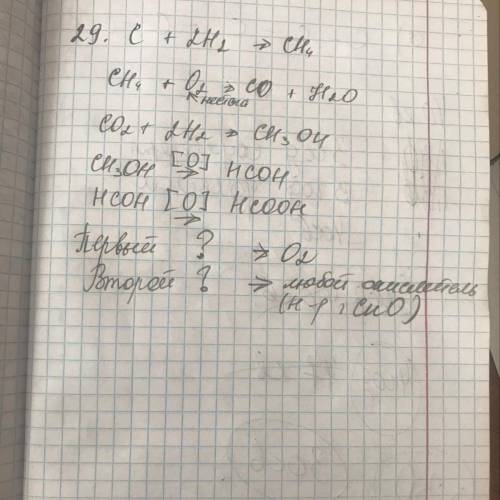 29. C + 2H2 → CH4
CH4 + O2 → CO + H2O
нехватка
CO2 + 2H2 → CH3OH
CH3OH [O] → HCOH
HCOH [O] → HCOOH
Первый ? → O2
Второй ? → любой окислитель
(н-р, CuO)